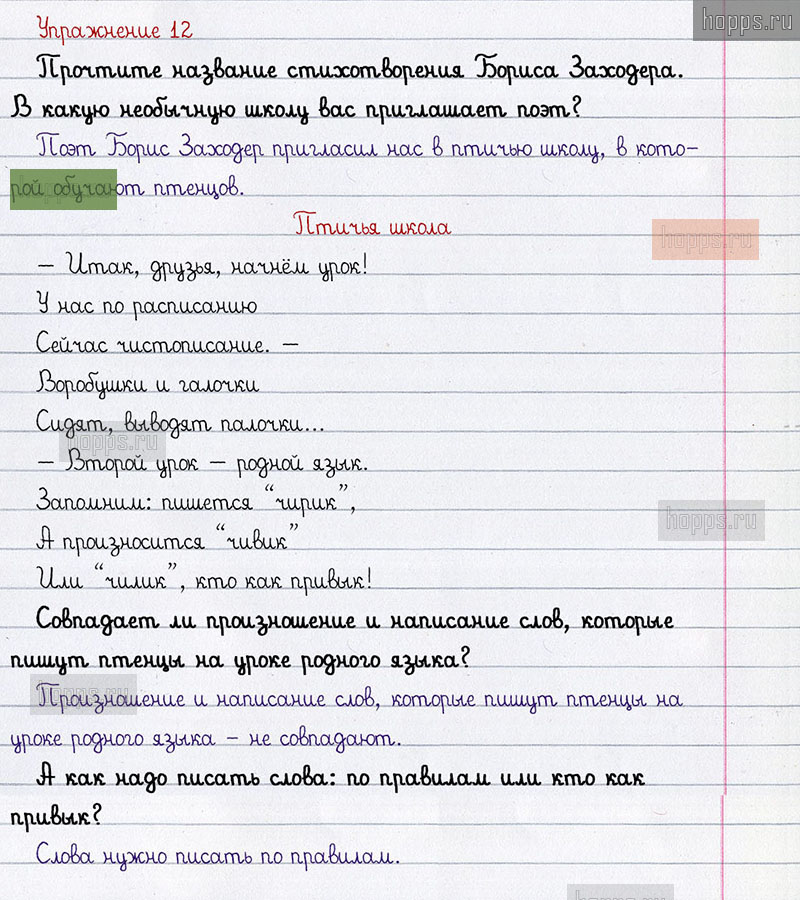 hopps.ru
Упражнение 12
Прочтите название стихотворения Бориса Заходера.
В какую необычную школу вас приглашает поэт?
Поэт Борис Заходер пригласил нас в птичью школу, в кото-
рой обучают птенцов.
Птичья школа
hopps.ru
– Итак, друзья, начнём урок!
У нас по расписанию
Сейчас чистописание. –
Воробушки и галочки
Сидят, выводят палочки...
hopps.ru
– Второй урок – родной язык.
Запомним: пишется “чирик”,
hopps.ru
А произносится “чивик”
Или “чилик”, кто как привык!
Совпадает ли произношение и написание слов, которые
пишут птенцы на уроке родного языка?
Произношение и написание слов, которые пишут птенцы на
уроке родного языка – не совпадают.
А как надо писать слова: по правилам или кто как
привык?
Слова нужно писать по правилам.